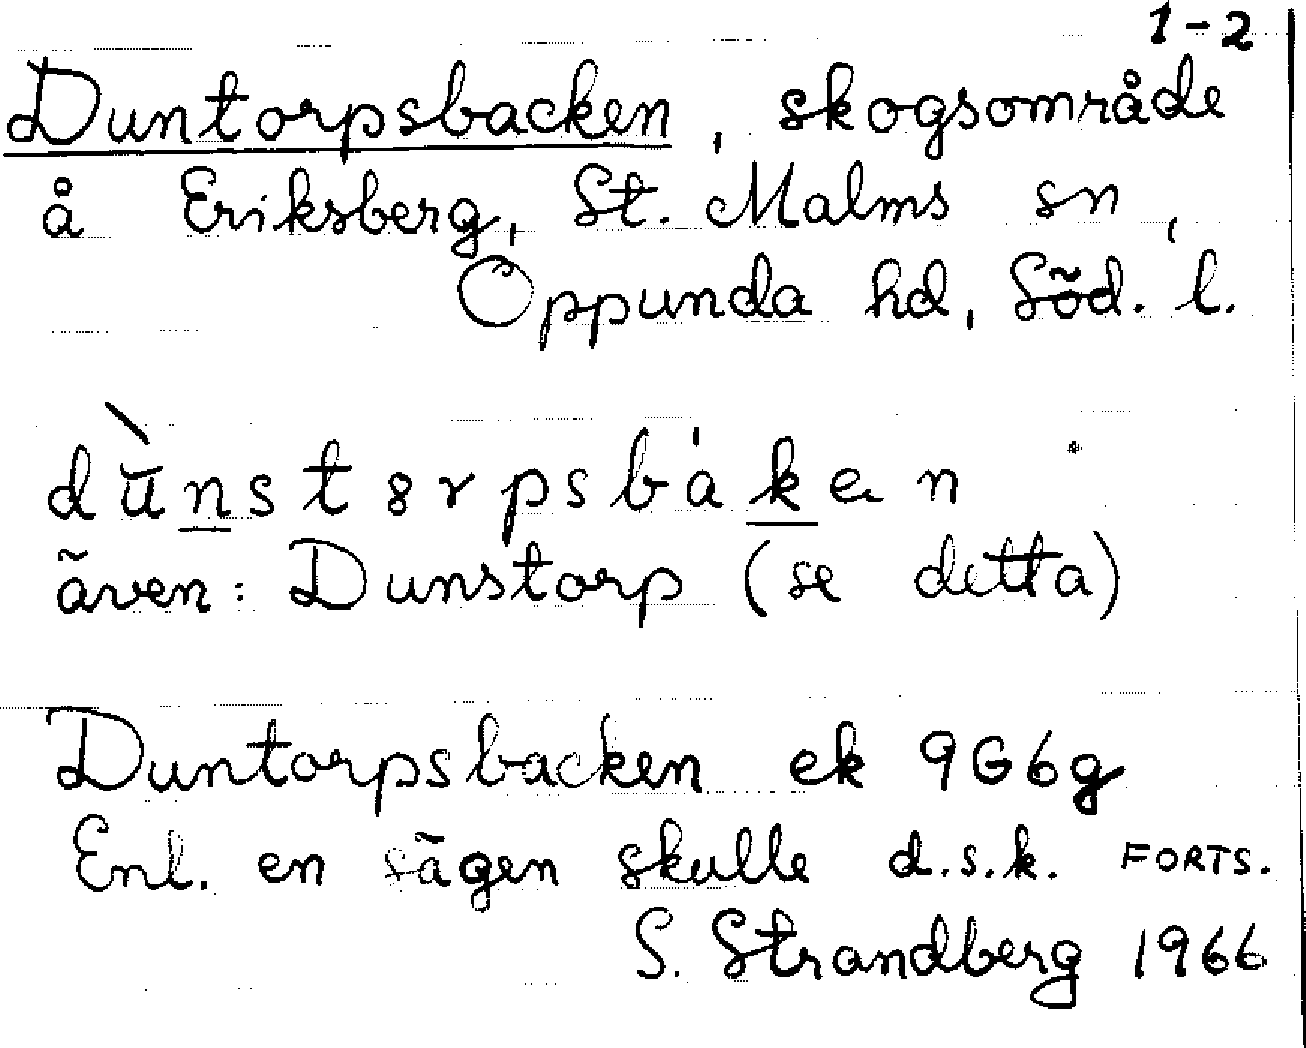 1-2
Duntorpsbacken, skogsområde
å Eriksberg, St. Malms sn,
Oppunda hd, Söd. l.
dùnstɞrpsbákɐn
även: Dunstorp (se detta)
Duntorpsbacken ek 9G6g
Enl. en sägen skulle d.s.k. FORTS.
S. Strandberg 1966